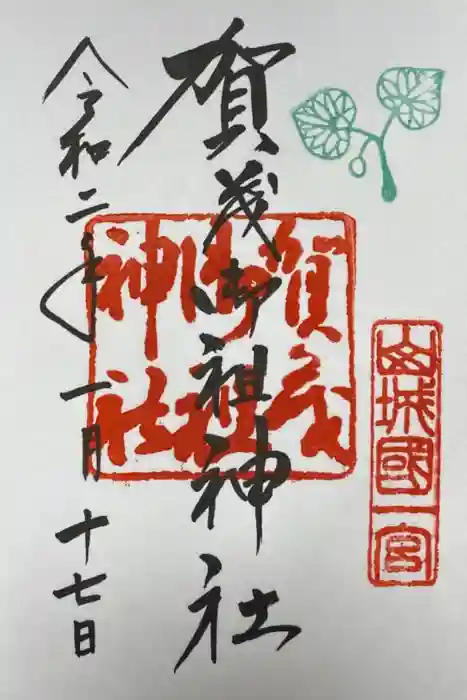 山城國一宮
賀茂御祖神社
賀茂御祖神社
令和二年一月十七日